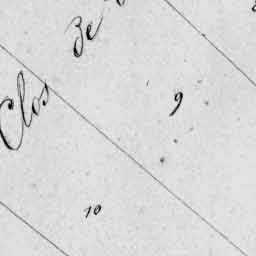 Clos Ze
9
10